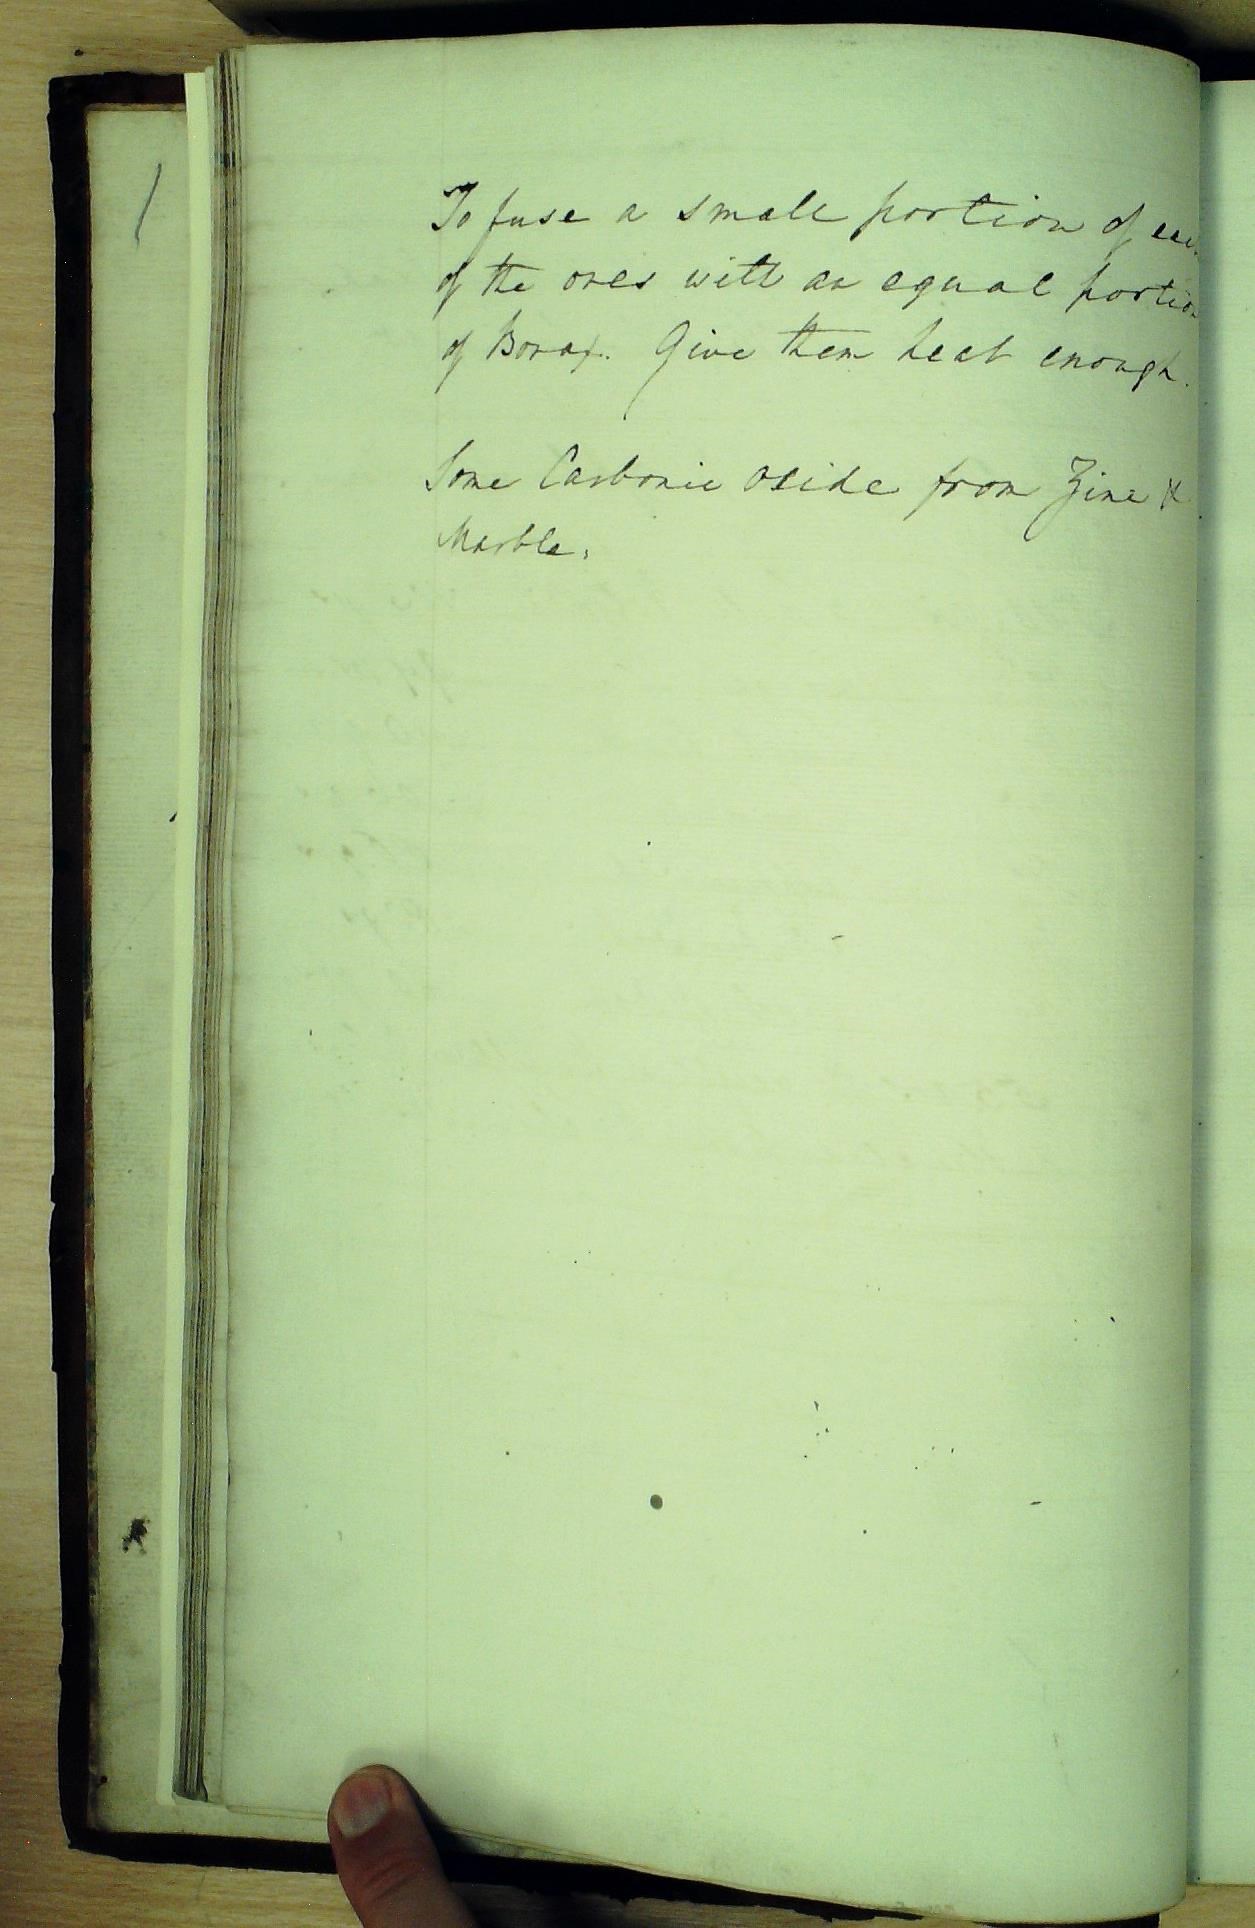 To fuse a small portion of each
of the ores with an equal portion
of Borax. Give them heat enough.
Some Carbonic oxide from Zinc &
Marble.